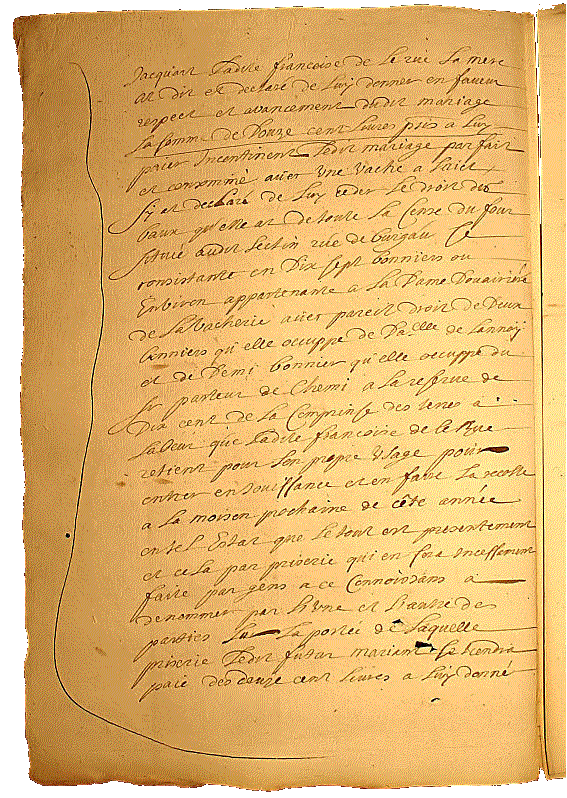 Jacquart Ladite francoise de le rue La mere
at dit et declaré de Luy donner en faveur
respect et avancement dudit mariage
La somme de Douze cent Livres pris a Luy
paier Incontinent Ledit mariage parfait
et consommé avecq une vache a Laict
Sy at declaré de Luy ceder Le droit du
baux qu'elle at de toute La Cense du four
scituée audit Seclin rue de Burgau Ce
consistante en Dix sept bonniers ou
Environ appartenante a La Dame Douairiére
de La vacherie avecq pareil droit de Deux
bonniers qu'elle occuppe de Da.elle de Lannoy
et de Demi bonnier qu'elle occuppe du
Sr pasteur de Chemi a La reserve de
Dix cent de La Comprinse des terres a
Labeur que Ladite francoise de le Rue
retient pour Son propre usage pour
entrer en Jouissance et en faire La recolte
a La moison prochaine de cête année
en tel Estat que Le tout est presentement
et ce La par priserie qui en sera Incessament
faite par gens a ce Connoissans a
denommer par L'une et L'autre des
parties La portée de Laquelle
priserie Ledit futur mariant se tiendra
paié des douze cent Livres a Luy donné